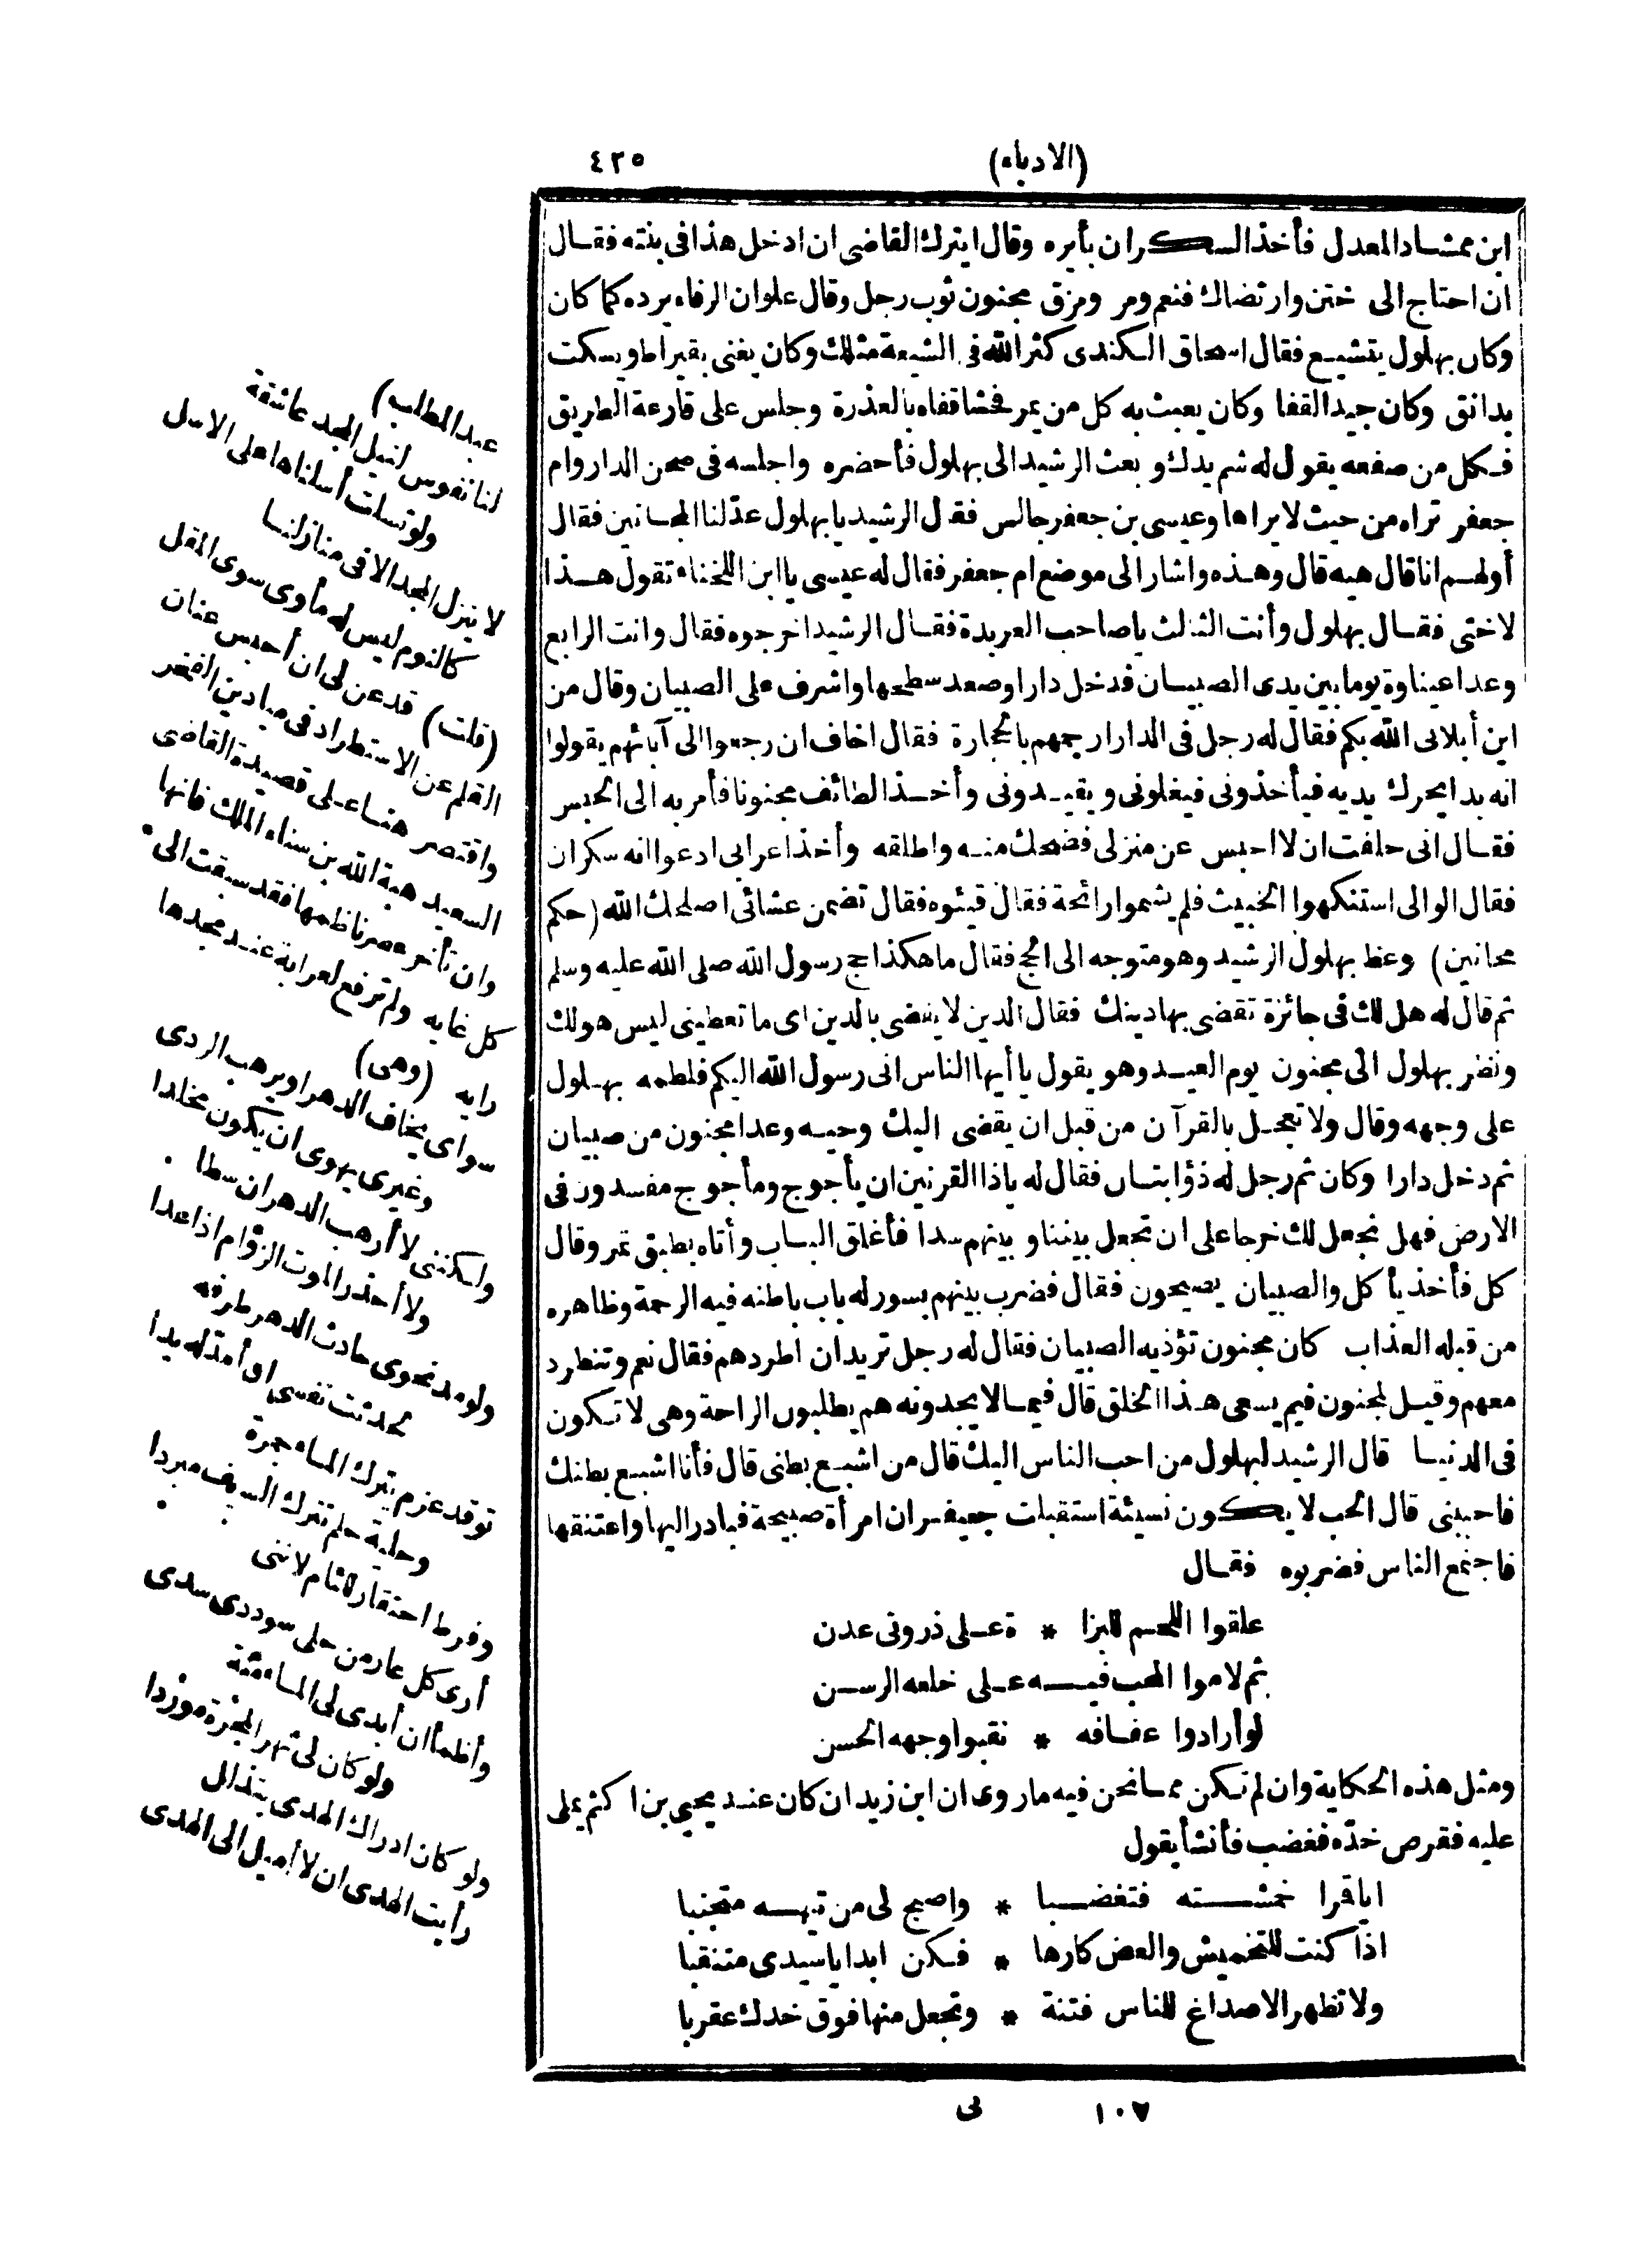 (الادباء)
٤٢٥
ابن ممشاد المعدل فأخذ السكران بأيره وقال ايترك القاضى ان ادخل هذا فى بنته فقال
ان احتاج الى ختن وارتضاك فنعم ومر ومزق مجنون ثوب رجل وقال علوان الرفاء يرده كما كان
وكان بهلول يتشيع فقال اسحاق الكندى كثر الله فى الشيعة مثلك وكان يغنى بقيراط ويسكت
بدانق وكان جيد القفا وكان يعبث به كل من يمر فحشا قفاه بالعذرة وجلس على قارعة الطريق
فكل من صفعه يقول له شم يدك وبعث الرشيد الى بهلول فأحضره واجلسه فى صحن الدار وام
جعفر تراه من حيث لا يراها وعيسى بن جعفر جالس فقال الرشيد يا بهلول عدّلنا المجانين فقال
أولهم انا قال هيه قال وهذه واشار الى موضع ام جعفر فقال له عيسى يا ابن اللخناء تقول هذا
لاختى فقال بهلول وأنت الثالث يا صاحب العربدة فقال الرشيد اخرجوه فقال وانت الرابع
وعدا عيناوة يوما بين يدى الصبيان فدخل دارا وصعد سطحها واشرف على الصبيان وقال من
اين أبلانى الله بكم فقال له رجل فى الدار ارجمهم بالحجارة فقال اخاف ان رجعوا الى آبائهم يقولوا
انه بدا يحرك يديه فيأخذونى فيغلونى ويقيدونى وأخذ الطائف مجنونا فأمر به الى الحبس
فقال انى حلفت ان لا احبس عن منزلى فضحك منه واطلقه وأخذ اعرابى ادعوا انه سكران
فقال الوالى استنكهوا الخبيث فلم يشموا رائحة فقال قيئوه فقال تضمن عشائى اصلحك الله (حكم
مجانين) وعظ بهلول الرشيد وهو متوجه الى الحج فقال ما هكذا حج رسول الله صلى الله عليه وسلم
ثم قال له هل لك فى جائزة تقضى بها دينك فقال الدين لا يقضى بالدين اى ما تعطينى ليس هو لك
ونظر بهلول الى مجنون يوم العيد وهو يقول يا أيها الناس انى رسول الله اليكم فلطمه بهلول
على وجهه وقال ولا تعجل بالقرآن من قبل ان يقضى اليك وحيه وعدا مجنون من صبيان
ثم دخل دارا وكان ثم رجل له ذؤابتان فقال له ياذا القرنين ان يأجوج ومأجوج مفسدون فى
الارض فهل نجعل لك خرجا على ان تجعل بيننا وبينهم سدا فأغلق الباب وأتاه بطبق تمر وقال
كل فأخذ يأكل والصبيان يصيحون فقال فضرب بينهم بسور له باب باطنه فيه الرحمة وظاهره
من قبله العذاب كان مجنون تؤذيه الصبيان فقال له رجل تريد ان اطردهم فقال نعم وتنطرد
معهم وقيل لمجنون فيم يسعى هذا الخلق قال فيما لا يجدونه هم يطلبون الراحة وهى لا تكون
فى الدنيا قال الرشيد لبهلول من احب الناس اليك قال من اشبع بطنى قال فأنا اشبع بطنك
فاحببنى قال الحب لا يكون نسيئة استقبلت جعيفران امرأة صبيحة فبادر اليها واعتنقها
فاجتمع الناس فضربوه فقال
علقوا اللحم للبزا * ة على ذروتى عدن
ثم لاموا المحب فيه على خلعه الرسن
لو أرادوا عفافه * نقبوا وجهه الحسن
ومثل هذه الحكاية وان لم تكن مما نحن فيه ما روى ان ابن زيدان كان عند يحيى بن اكثم يملى
عليه فقرص خدّه فغضب فأنشأ يقول
ايا قمرا خمشته فتغضبا * واصبح لى من تيهه متجنبا
اذا كنت للتخميش والعض كارها * فكن ابدا يا سيدى متنقبا
ولا تظهر الاصداغ للناس فتنة * وتجعل منها فوق خدك عقربا
١٠٧
نى
عبد المطلب)
لنا نفوس لنيل المجد عاشقة
ولو تسلت أسلناها على الاسل
لا ينزل المجد الا فى منازلنا
كالنوم ليس له مأوى سوى المقل
(قلت) قد عن لى ان أحبس عنان
القلم عن الاستطراد فى ميادين الفخر
واقتصر هنا على قصيدة القاضى
السعيد هبة الله بن سناء الملك فانها
وان تأخر عصر ناظمها فقد سبقت الى
كل غايه ولم ترفع لعرابة عند مجدها
رايه (وهى)
سواى يخاف الدهر او يرهب الردى
وغيرى يهوى ان يكون مخلدا
ولكننى لا أرهب الدهر ان سطا
ولا أحذر الموت الزؤام اذا عدا
ولو مد نحوى حادث الدهر طرفه
لحدثت نفسى ان أمد له يدا
توقد عزم يترك الماء جمرة
وحلية حلم تترك السيف مبردا
وفرط احتقار للانام لاننى
أرى كل عار من حلى سوددى سدى
وأظمأ ان أبدى لى الماء منة
ولو كان لى نهر المجرة موردا
ولو كان ادراك الهدى بتذلل
رأيت الهدى ان لا أميل الى الهدى